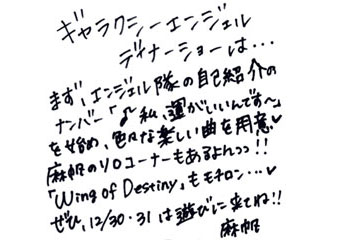 ギャラクシーエンジェル
ディナーショーは…
まず、エンジェル隊の自己紹介の
ナンバー「♪私、運がいいんです〜」
を始め、色々な楽しい曲を用意♥
麻帆のソロコーナーもあるよんっっ!!
「Wing of Destiny」もモチロン…♥
ぜひ、12/30・31は遊びに来てね!!
麻帆